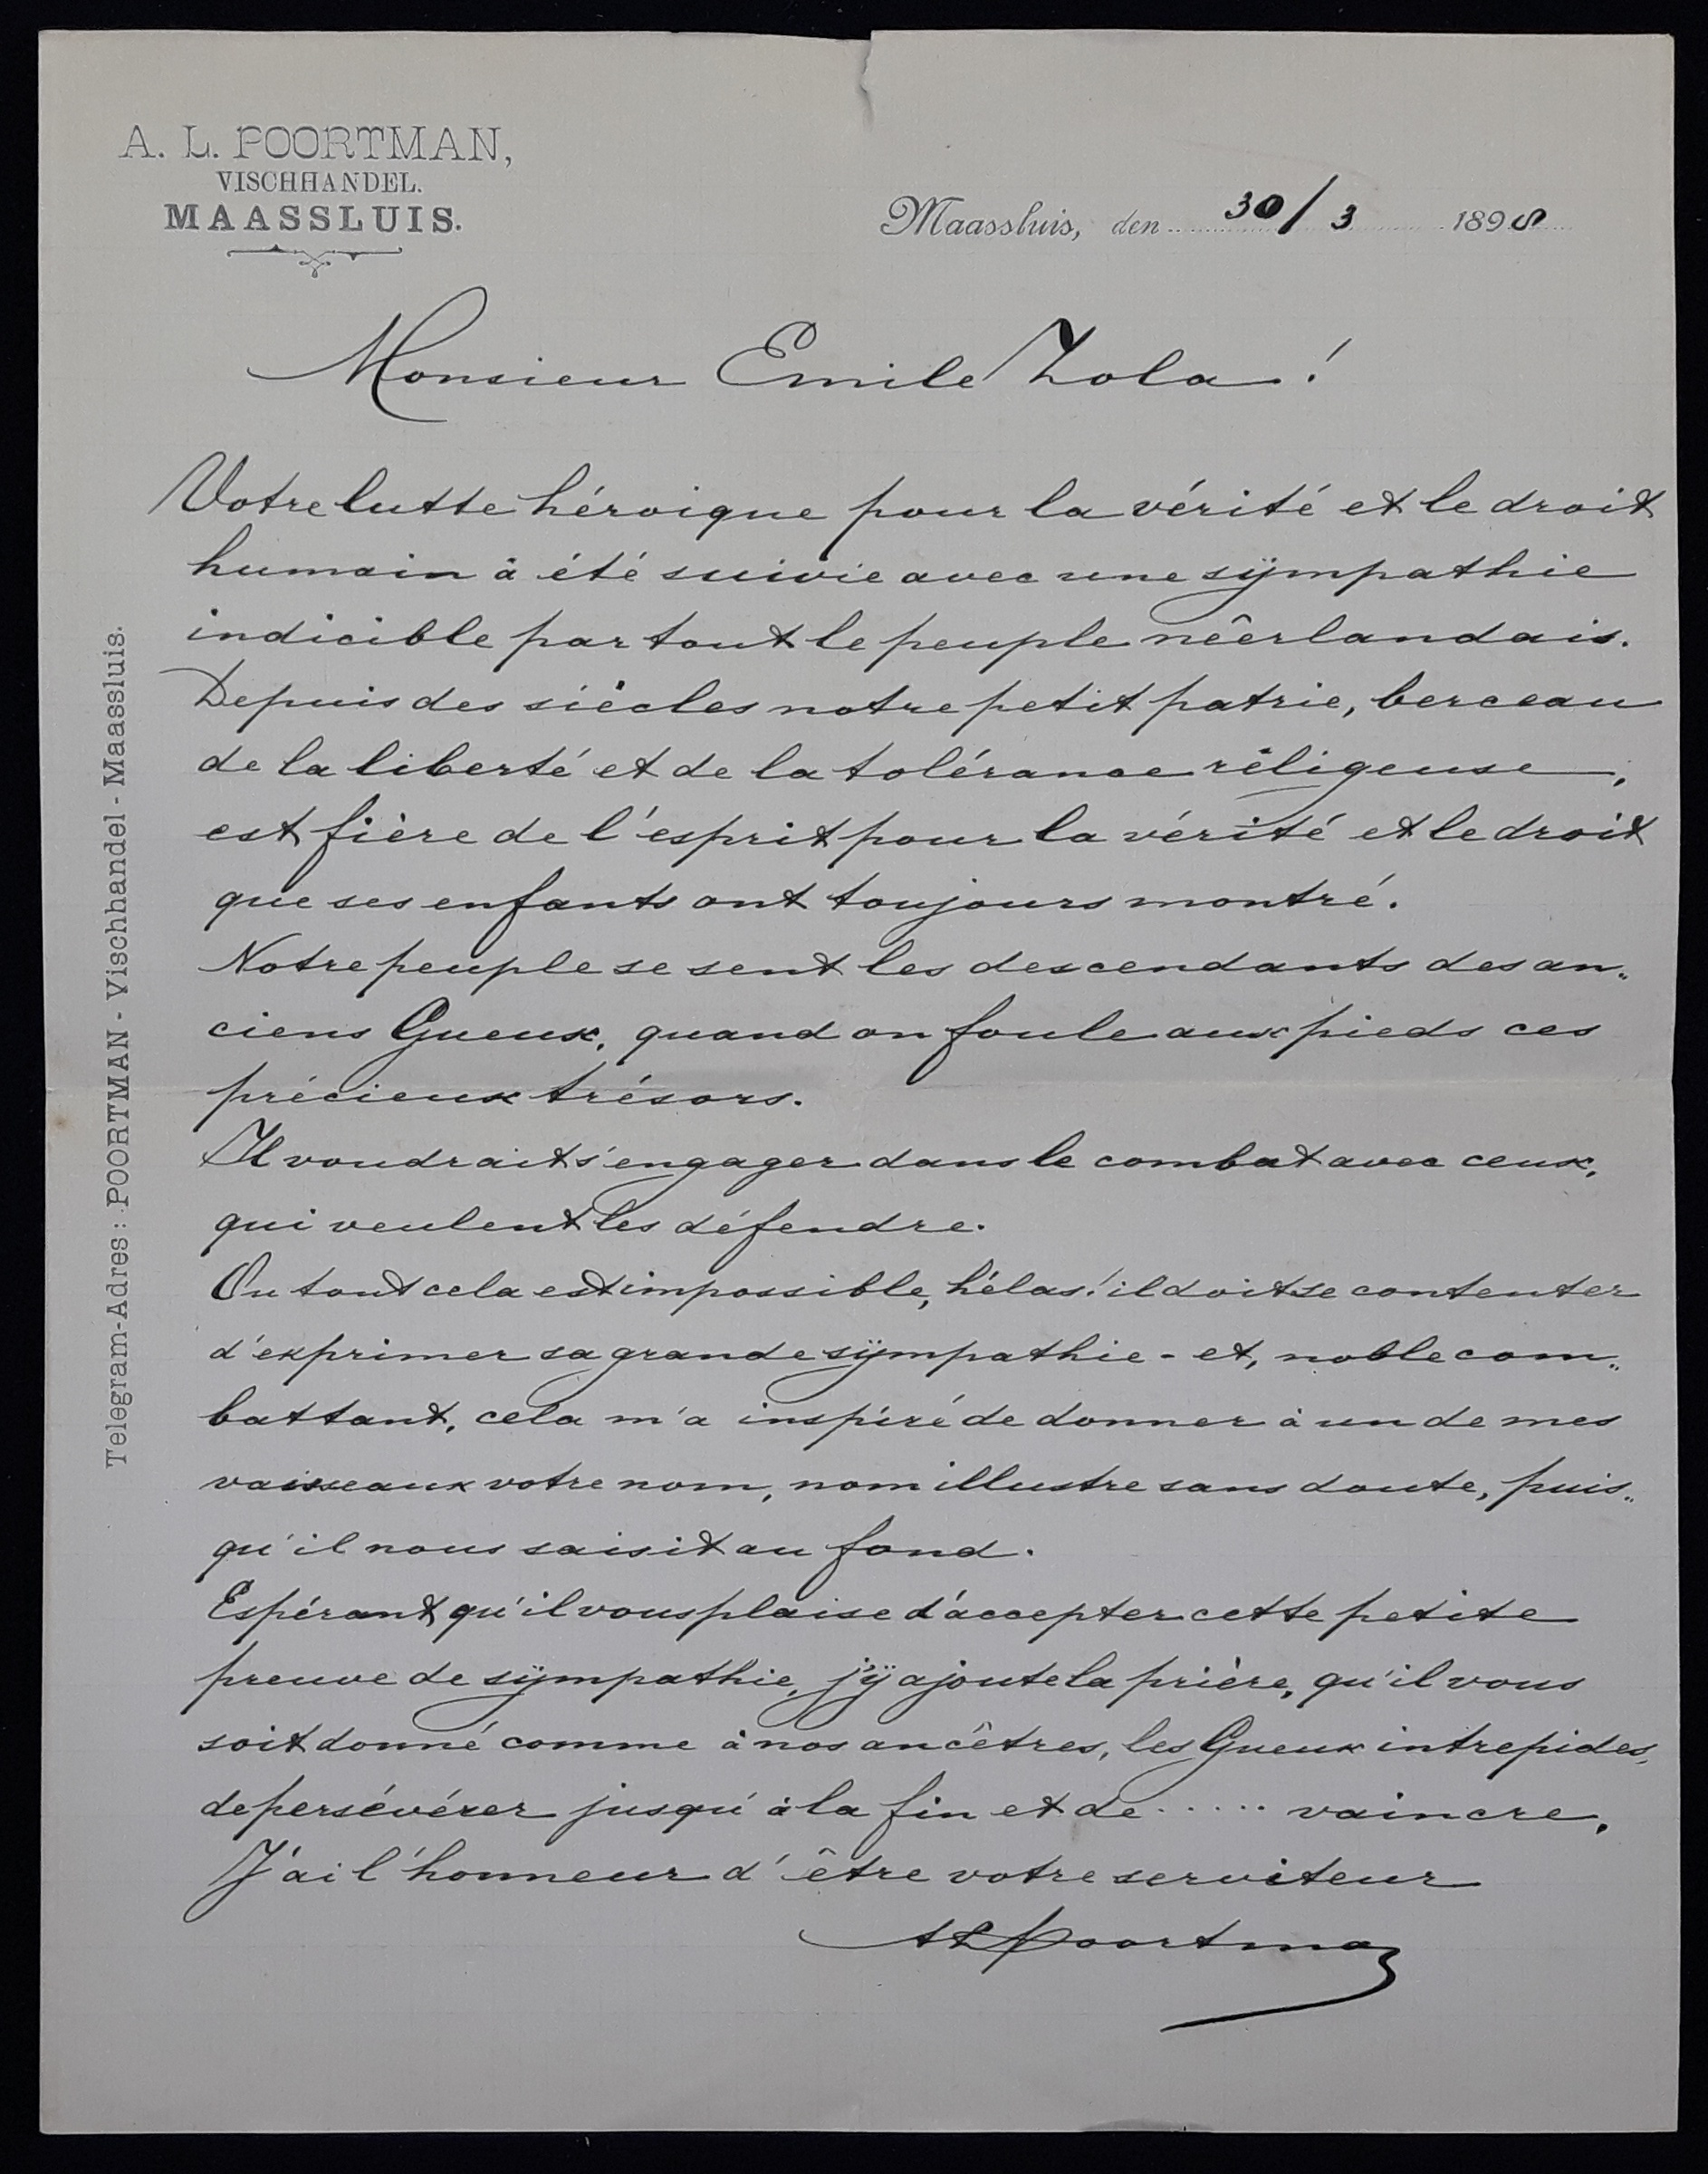 A. L. POORTMAN,
VISCHHANDEL.
MAASSLUIS.
Maassluis, den 30/3 1898
Telegram-Adres: POORTMAN - Vischhandel - Maassluis.
Monsieur Emile Zola!
Votre lutte héroique pour la vérité et le droit
humain à été suivie avec une sÿmpathie
indicible par tout le peuple nêerlandais.
Depuis des siècles notre petit patrie, berceau
de la liberté et de la tolérance réligeuse,
est fière de l'esprit pour la vérité et le droit
que ses enfants ont toujours montré.
Notre peuple se sent les descendants des an„
ciens Gueux, quand on foule aux pieds ces
précieux trésors.
Il voudrait s'engager dans le combat avec ceux,
qui veulent les défendre.
Ou tout cela est impossible, hélas! il doit se contenter
d'exprimer sa grande sÿmpathie - et, noble com„
battant, cela m'a inspiré de donner à un de mes
vaisseaux votre nom, nom illustre sans doute, puis„
qu'il nous saisit au fond.
Espérant, qu'il vous plaise d'accepter cette petite
preuve de sÿmpathie, j'ÿ ajoute la prière, qu'il vous
soit donné comme à nos ancêtres, les Gueux intrepides,
de persévérer jusqu'à la fin et de ..... vaincre.
J'ai l'honneur d'être votre serviteur
ALPoortman